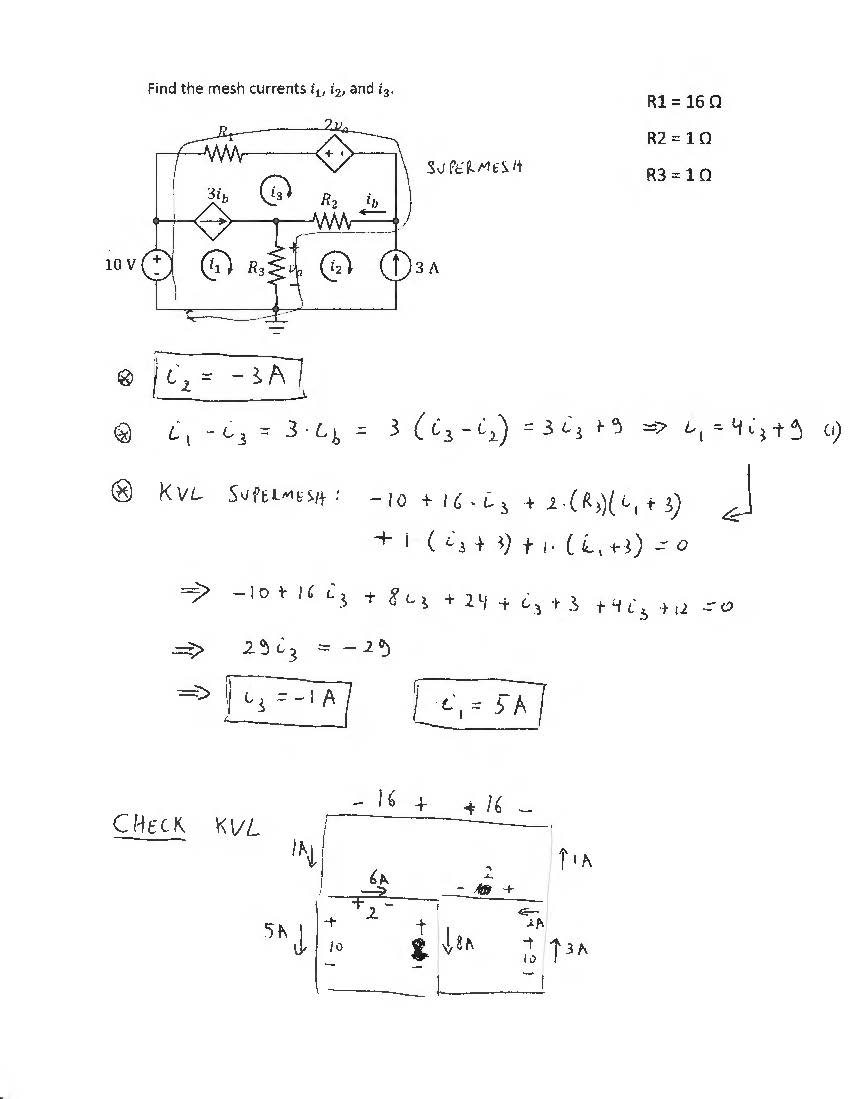 Find the mesh currents i₁, i₂, and i₃.
R1 = 16 Ω
R2 = 1 Ω
R3 = 1 Ω
R₁
2vₐ
+ -
SUPERMESH
3i_b
i₃
R₂
i_b
10 V
+
-
i₁
R₃
+
vₐ
-
i₂
3 A
⊛ i₂ = -3A
⊛ i₁ - i₃ = 3·i_b = 3 (i₃ - i₂) = 3i₃ + 9 ⇒ i₁ = 4i₃ + 9 (1)
⊛ KVL SUPERMESH: -10 + 16·i₃ + 2·(R₃)(i₁ + 3)
+ 1 (i₃ + 3) + 1·(i₁ + 3) = 0
⇒ -10 + 16 i₃ + 8i₃ + 24 + i₃ + 3 + 4i₃ + 12 = 0
⇒ 29i₃ = -29
⇒ i₃ = -1 A i₁ = 5A
CHECK KVL
- 16 + + 16 -
1A↓
↑1A
6A
→
+ 2 -
2
- +
←
2A
5A↓
+
10
-
+
8
-
↓8A
+
10
-
↑3A